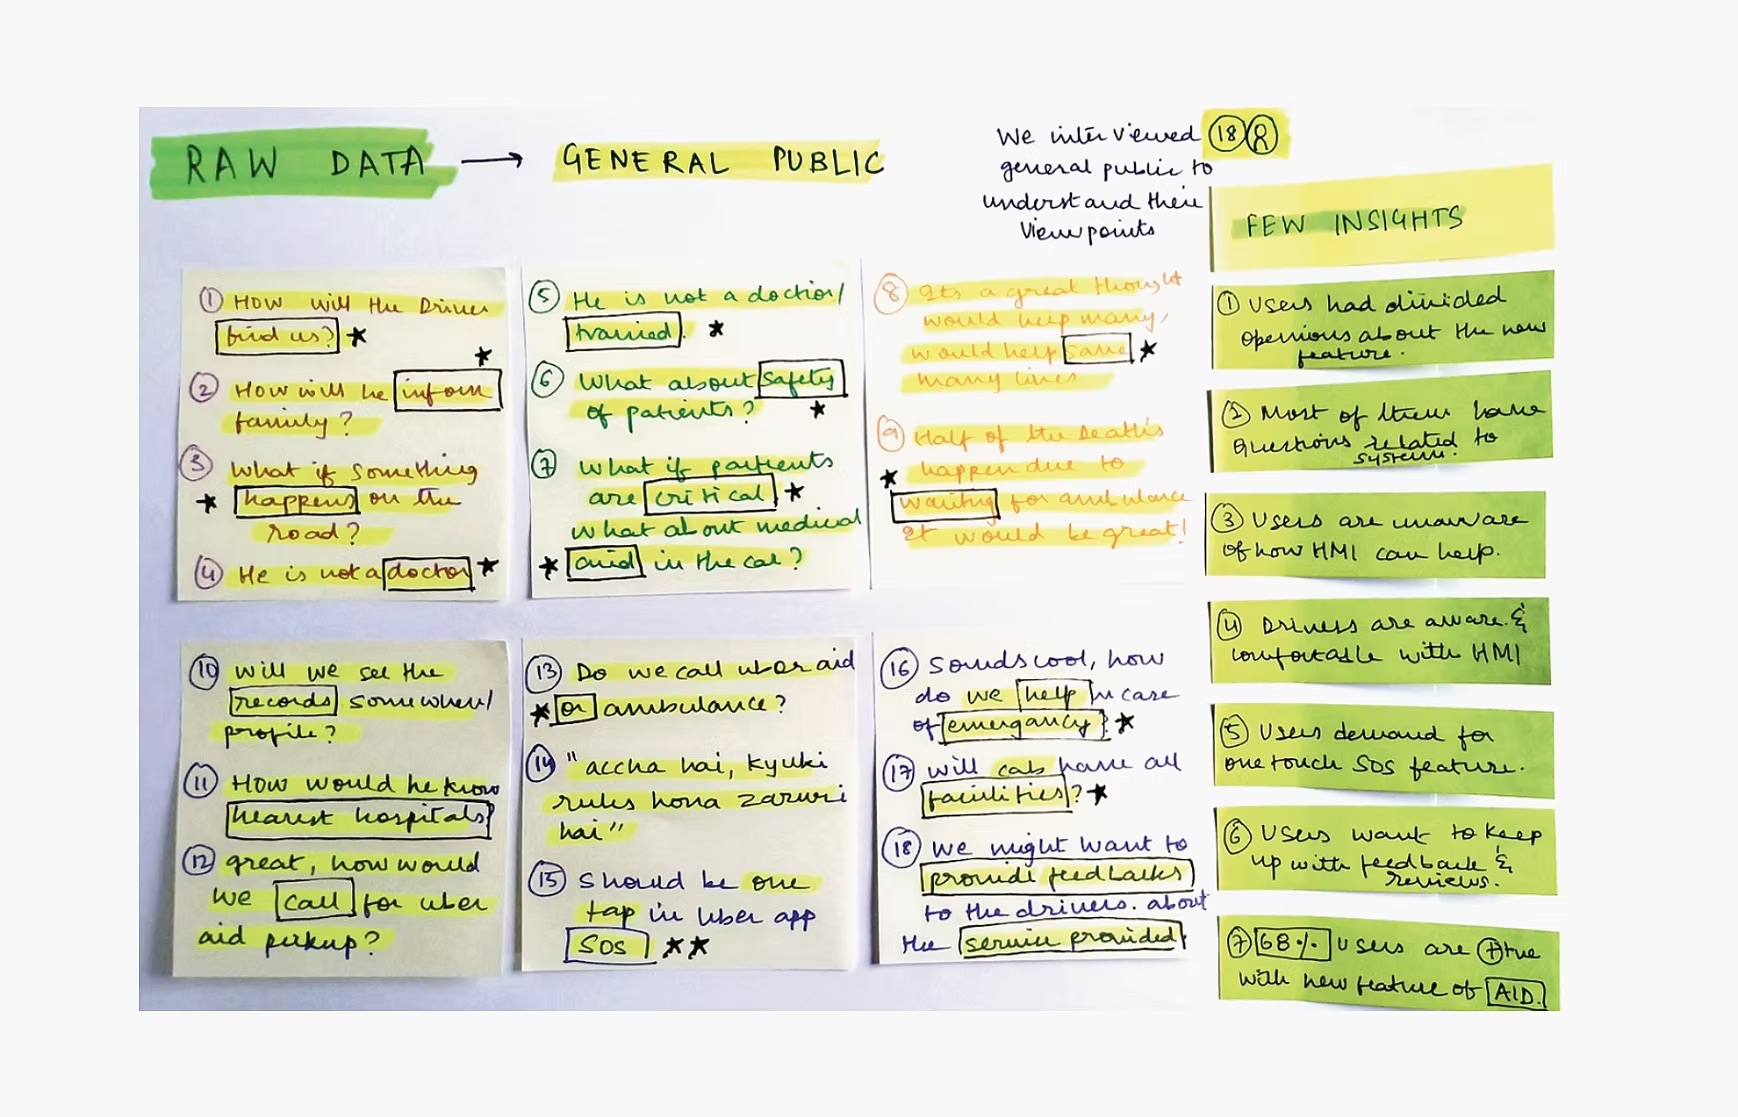 RAW DATA → GENERAL PUBLIC
We interviewed 18
general public to
understand their
viewpoints
FEW INSIGHTS
① How will the Driver
find us? ★
② How will he inform ★
family?
③ What if something
★ happens on the
road?
④ He is not a doctor ★
⑤ He is not a doctor/
trained. ★
⑥ What about safety
of patients? ★
⑦ What if patients
are critical ★
What about medical
★ aid in the car?
⑧ Its a great thought
would help many,
would help save ★
many lives
⑨ Half of the Deaths
★ happen due to
waiting for ambulance
It would be great!
⑩ Will we see the
records somewhere/
profile?
⑪ How would he know
nearest hospitals?
⑫ great, how would
we call for uber
aid pickup?
⑬ Do we call uber aid
★ or ambulance?
⑭ "accha hai, kyuki
rules hona zaruri
hai"
⑮ Should be one
tap in Uber app
SOS ★★
⑯ Sounds cool, how
do we help in case
of emergancy? ★
⑰ will cabs have all
facilities? ★
⑱ we might want to
provide feedbacks
to the drivers. about
the service provided.
① Users had divided
openions about the new
feature.
② Most of them have
Questions related to
system.
③ Users are unaware
of how HMI can help.
④ Drivers are aware &
comfortable with HMI
⑤ Users demand for
one touch SOS feature.
⑥ Users want to keep
up with feedback &
reviews.
⑦ 68% users are +tve
with new feature of AID.